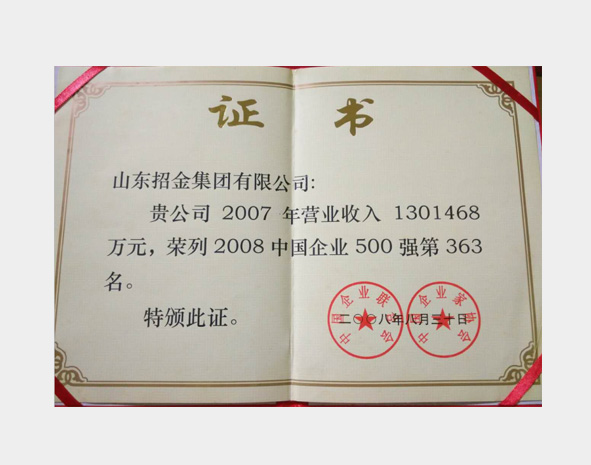 证书
山东招金集团有限公司:
贵公司 2007 年营业收入 1301468
万元，荣列 2008 中国企业 500 强第 363
名。
特颁此证。
中国企业联合会
中国企业家协会
二〇〇八年八月三十日